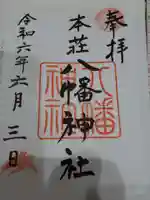 奉拝
本荘八幡神社
令和六年六月三日